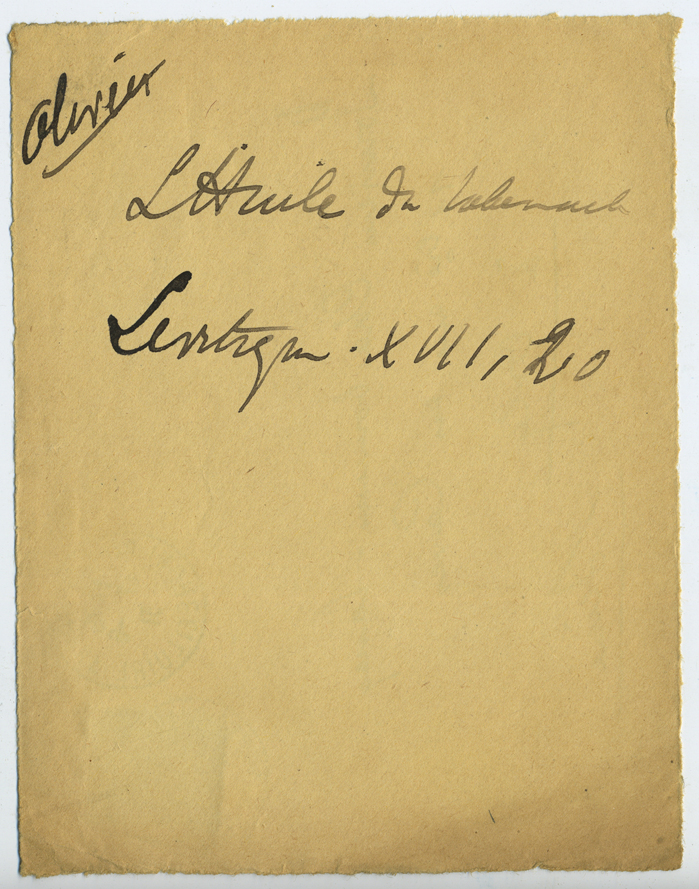 Olivier
L'Huile du tabernacle
Levitique. XVII, 20